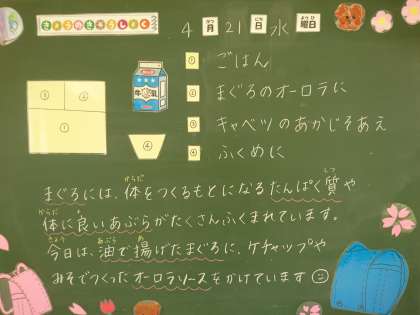 きょうのきゅうしょく
4月21日水曜日
がつ にち ようび
③ ② ①
牛乳
④
1 ごはん
2 まぐろのオーロラに
3 キャベツのあかじそあえ
4 ふくめに
からだ しつ
まぐろには、体をつくるもとになるたんぱく質や
からだ よ
体に良いあぶらがたくさんふくまれています。
きょう あぶら あ
今日は、油で揚げたまぐろに、ケチャップや
みそでつくったオーロラソースをかけています